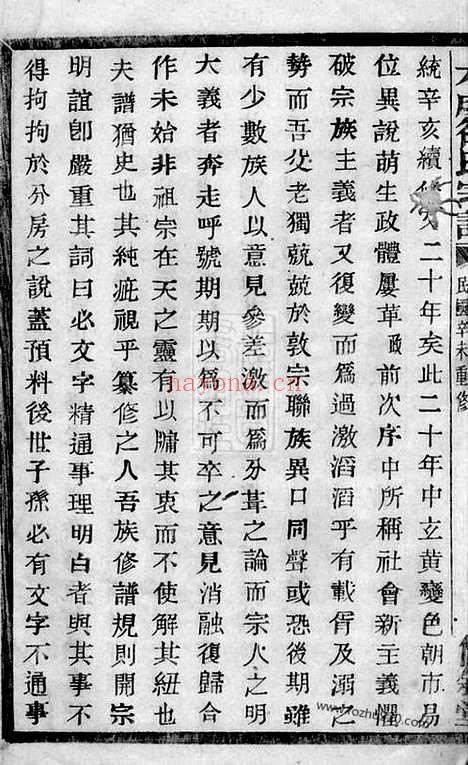 民國辛未重修
統辛亥續修又二十年矣此二十年中玄黃變色朝市易
位異說萌生政體屢革與前次序中所稱社會新主義懼
破宗族主義者又復變而爲過激滔滔乎有載胥及溺之
勢而吾父老獨兢兢於敦宗聯族異口同聲或恐後期雖
有少數族人以意見參差激而爲分葺之論而宗人之明
大義者奔走呼號期期以爲不可卒之意見消融復歸合
作未始非祖宗在天之靈有以牖其衷而不使解其紐也
夫譜猶史也其純疵視乎纂修之人吾族修譜規則開宗
明誼卽嚴重其詞曰必文字精通事理明白者與其事不
得拘拘於分房之說蓋預料後世子孫必有文字不通事
hayond.cn
www.tozhu90.com